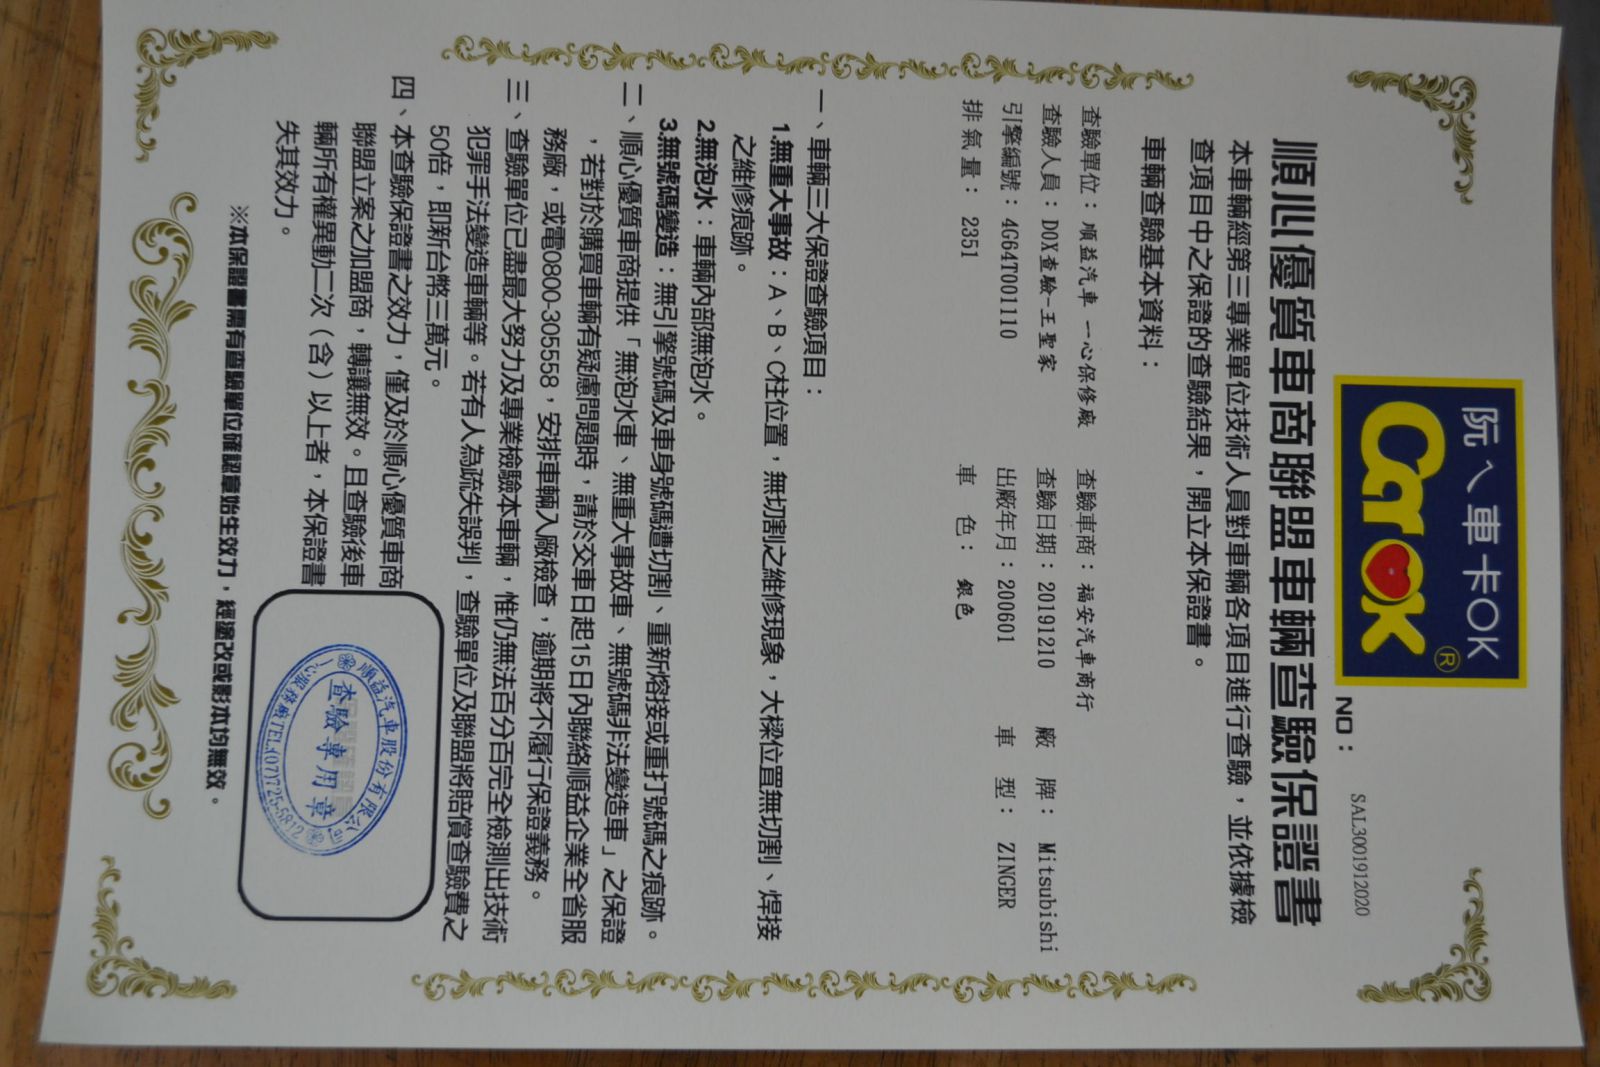 阮ㄟ車卡OK
Carok®
NO：SAL3001912020
順心優質車商聯盟車輛查驗保證書
本車輛經第三專業單位技術人員對車輛各項目進行查驗，並依據檢
查項目中之保證的查驗結果，開立本保證書。
車輛查驗基本資料：
查驗單位：順益汽車 一心保修廠 查驗車商：福安汽車商行
查驗人員：DOX查驗-王聖家 查驗日期：20191210 廠牌：Mitsubishi
引擎編號：4G64T001110 出廠年月：200601 車型：ZINGER
排氣量：2351 車色：銀色
一、車輛三大保證查驗項目：
1.無重大事故：A、B、C柱位置，無切割之維修現象，大樑位置無切割、焊接
之維修痕跡。
2.無泡水：車輛內部無泡水。
3.無號碼變造：無引擎號碼及車身號碼遭切割、重新熔接或重打號碼之痕跡。
二、順心優質車商提供「無泡水車、無重大事故車、無號碼非法變造車」之保證
，若對於購買車輛有疑慮問題時，請於交車日起15日內聯絡順益企業全省服
務廠，或電0800-305558，安排車輛入廠檢查，逾期將不履行保證義務。
三、查驗單位已盡最大努力及專業檢驗本車輛，惟仍無法百分百完全檢測出技術
犯罪手法變造車輛等。若有人為疏失誤判，查驗單位及聯盟將賠償查驗費之
50倍，即新台幣三萬元。
四、本查驗保證書之效力，僅及於順心優質車商
聯盟立案之加盟商，轉讓無效。且查驗後車
輛所有權異動二次（含）以上者，本保證書
失其效力。
順益汽車股份有限公司
查驗專用章
一心服務廠TEL:(07)725-5812
※本保證書需有查驗單位確認章始生效力，經塗改或影本均無效。